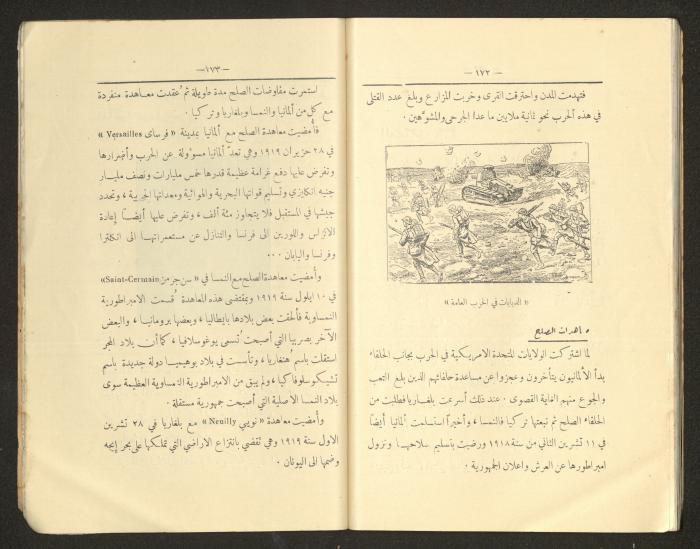 — ١٧٢ —
فتهدمت المدن واحترقت القرى وخربت المزارع وبلغ عدد القتلى
في هذه الحرب نحو ثمانية ملايين ما عدا الجرحى والمشوَّهين .
« الدبابات في الحرب العامة »
معاهدات الصلح
لما اشتركت الولايات المتحدة الامريكية في الحرب بجانب الحلفاء
بدأ الألمانيون يتأخرون وعجزوا عن مساعدة حلفائهم الذين بلغ التعب
والجوع منهم الغاية القصوى . عند ذلك أسرعت بلغاريا فطلبت من
الحلفاء الصلح ثم تبعتها تركيا فالنمسا ، وأخيراً استسلمت ألمانيا أيضاً
في ١١ تشرين الثاني من سنة ١٩١٨ ورضيت بتسليم سلاحها ونزول
امبراطورها عن العرش واعلان الجمهورية .
— ١٧٣ —
استمرت مفاوضات الصلح مدة طويلة ثم عُقدت معاهدة منفردة
مع كل من ألمانيا والنمسا وبلغاريا وتركيا .
فأُمضيت معاهدة الصلح مع ألمانيا بمدينة « فرساى Versailles »
في ٢٨ حزيران ١٩١٩ وهي تعدّ ألمانيا مسؤولة عن الحرب وأضرارها
وتفرض عليها دفع غرامة عظيمة قدرها خمس مليارات ونصف مليار
جنيه انكليزي وتسليم قواتها البحرية والهوائية ومعداتها الحربية ، وتحدد
جيشها في المستقبل فلا يتجاوز مئة ألف ، وتفرض عليها أيضاً إعادة
الالزاس واللورين الى فرنسا والتنازل عن مستعمراتها الى انكلترا
وفرنسا واليابان ...
وأُمضيت معاهدة الصلح مع النمسا في « سن جرمن Saint-Germain»
في ١٠ ايلول سنة ١٩١٩ وبمقتضى هذه المعاهدة قُسمت الامبراطورية
النمساوية فألحقت بعض بلادها بايطاليا ، وبعضها برومانيا ، والبعض
الآخر بصربيا التي أصبحت تُسمى يوغوسلافيا ، كما أن بلاد المجر
استقلت باسم هنغاريا ، وتأسست في بلاد بوهيميا دولة جديدة باسم
تشيكوسلوفاكيا ، ولم يبق من الامبراطورية النمساوية العظيمة سوى
بلاد النمسا الاصلية التي أصبحت جمهورية مستقلة .
وأُمضيت معاهدة « نويي Neuilly » مع بلغاريا في ٢٨ تشرين
الاول سنة ١٩١٩ وهي تقضي بانتزاع الاراضي التي تملكها على بحر إيجه
وضمها الى اليونان .